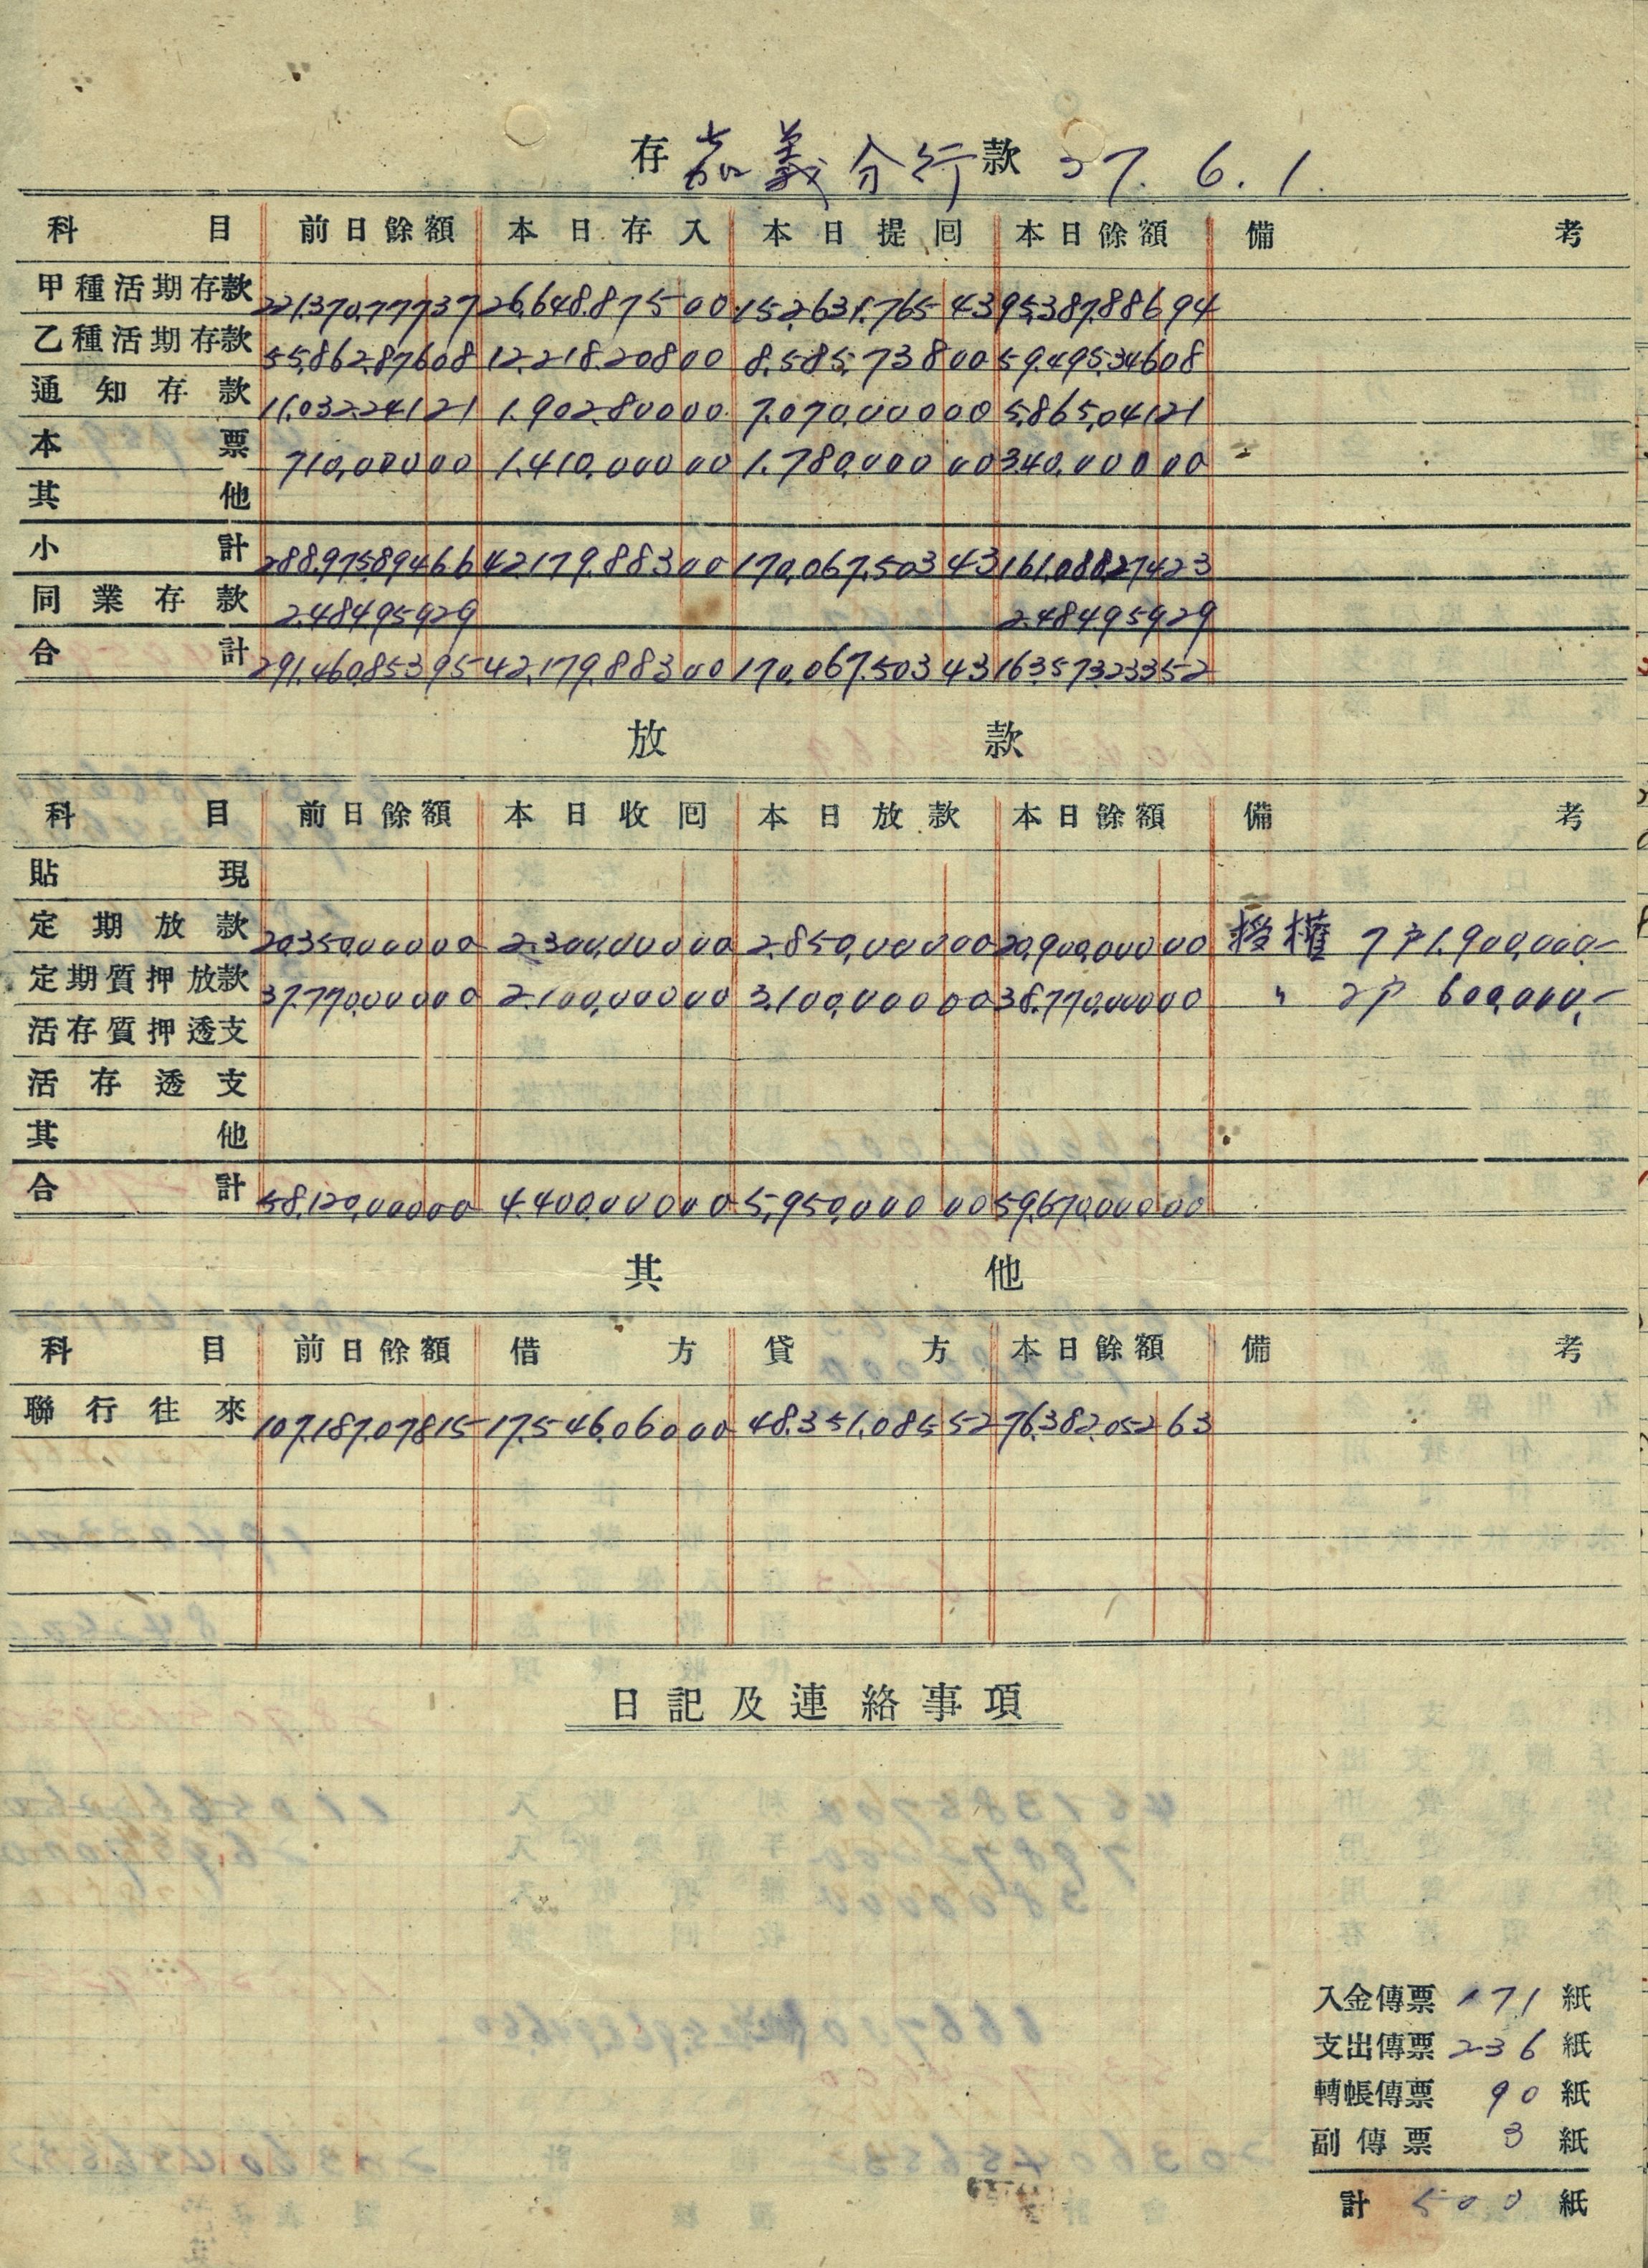 存 嘉義分行 款 37. 6. 1.
科目 前日餘額 本日存入 本日提回 本日餘額 備考
甲種活期存款 221,370,777 37 26,648,875 00 152,631,765 43 95,387,886 94
乙種活期存款 55,862,876 08 12,218,208 00 8,585,738 00 59,495,346 08
通知存款 11,032,241 21 1,902,800 00 7,070,000 00 5,865,041 21
本票 710,000 00 1,410,000 00 1,780,000 00 340,000 00
其他
小計 288,975,894 66 42,179,883 00 170,067,503 43 161,088,274 23
同業存款 2,484,959 29 2,484,959 29
合計 291,460,853 95 42,179,883 00 170,067,503 43 163,573,233 52
放款
科目 前日餘額 本日收回 本日放款 本日餘額 備考
貼現
定期放款 20,350,000 00 2,300,000 00 2,850,000 00 20,900,000 00 授權 7戶 1,900,000.-
定期質押放款 37,770,000 00 2,100,000 00 3,100,000 00 38,770,000 00 〃 2戶 600,000.-
活存質押透支
活存透支
其他
合計 58,120,000 00 4,400,000 00 5,950,000 00 59,670,000 00
其他
科目 前日餘額 借方 貸方 本日餘額 備考
聯行往來 107,187,078 15 17,546,060 00 48,351,085 52 76,382,052 63
日記及連絡事項
入金傳票 171 紙
支出傳票 236 紙
轉帳傳票 90 紙
副傳票 3 紙
計 500 紙